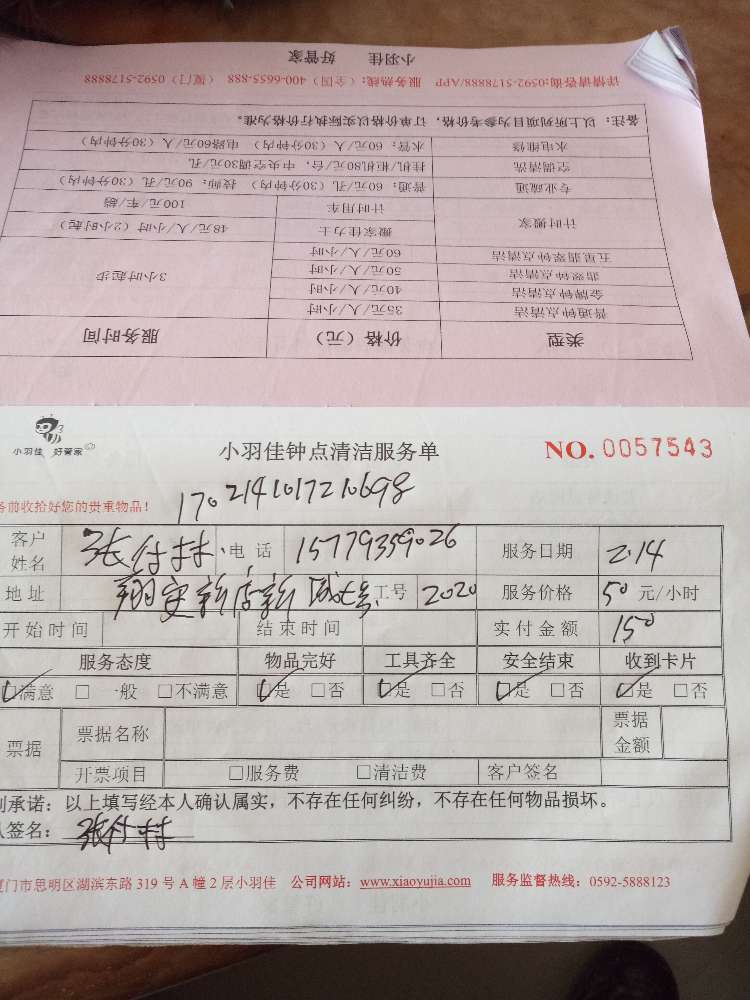 小羽佳 好管家
详情请咨询:0592-5178888/APP 服务热线:（全国）400-6655-888 （厦门）0592-5178888
备注：以上所列项目为参考价格，订单价以实际执行价格为准。
水电维修 水管：60元/人（30分钟内） 电路60元/人（30分钟内）
空调清洗 挂机/柜机80元/台，中央空调30元/孔
专业疏通 普通：60元/孔（30分钟内） 技师：90元/孔（30分钟内）
计时用车 100元/车/趟
计时搬家
搬家佳力士 48元/人/小时（2小时起）
五星翡翠钟点清洁 60元/人/小时
翡翠钟点清洁 50元/人/小时
3小时起步
金牌钟点清洁 40元/人/小时
普通钟点清洁 35元/人/小时
类型 价格（元） 服务时间
小羽佳 好管家
小羽佳钟点清洁服务单 NO. 0057543
务前收拾好您的贵重物品！
1702141017210698
客户姓名 张付林 电话 15779359026 服务日期 2.14
地址 翔安新店新 工号 2020 服务价格 50 元/小时
开始时间 结束时间 实付金额 150
服务态度 物品完好 工具齐全 安全结束 收到卡片
满意 □一般 □不满意 是 □否 是 □否 是 □否 是 □否
票据 票据名称 票据金额
开票项目 □服务费 □清洁费 客户签名
承诺：以上填写经本人确认属实，不存在任何纠纷，不存在任何物品损坏。
签名：张付林
厦门市思明区湖滨东路 319 号 A 幢 2 层小羽佳 公司网站：www.xiaoyujia.com 服务监督热线：0592-5888123